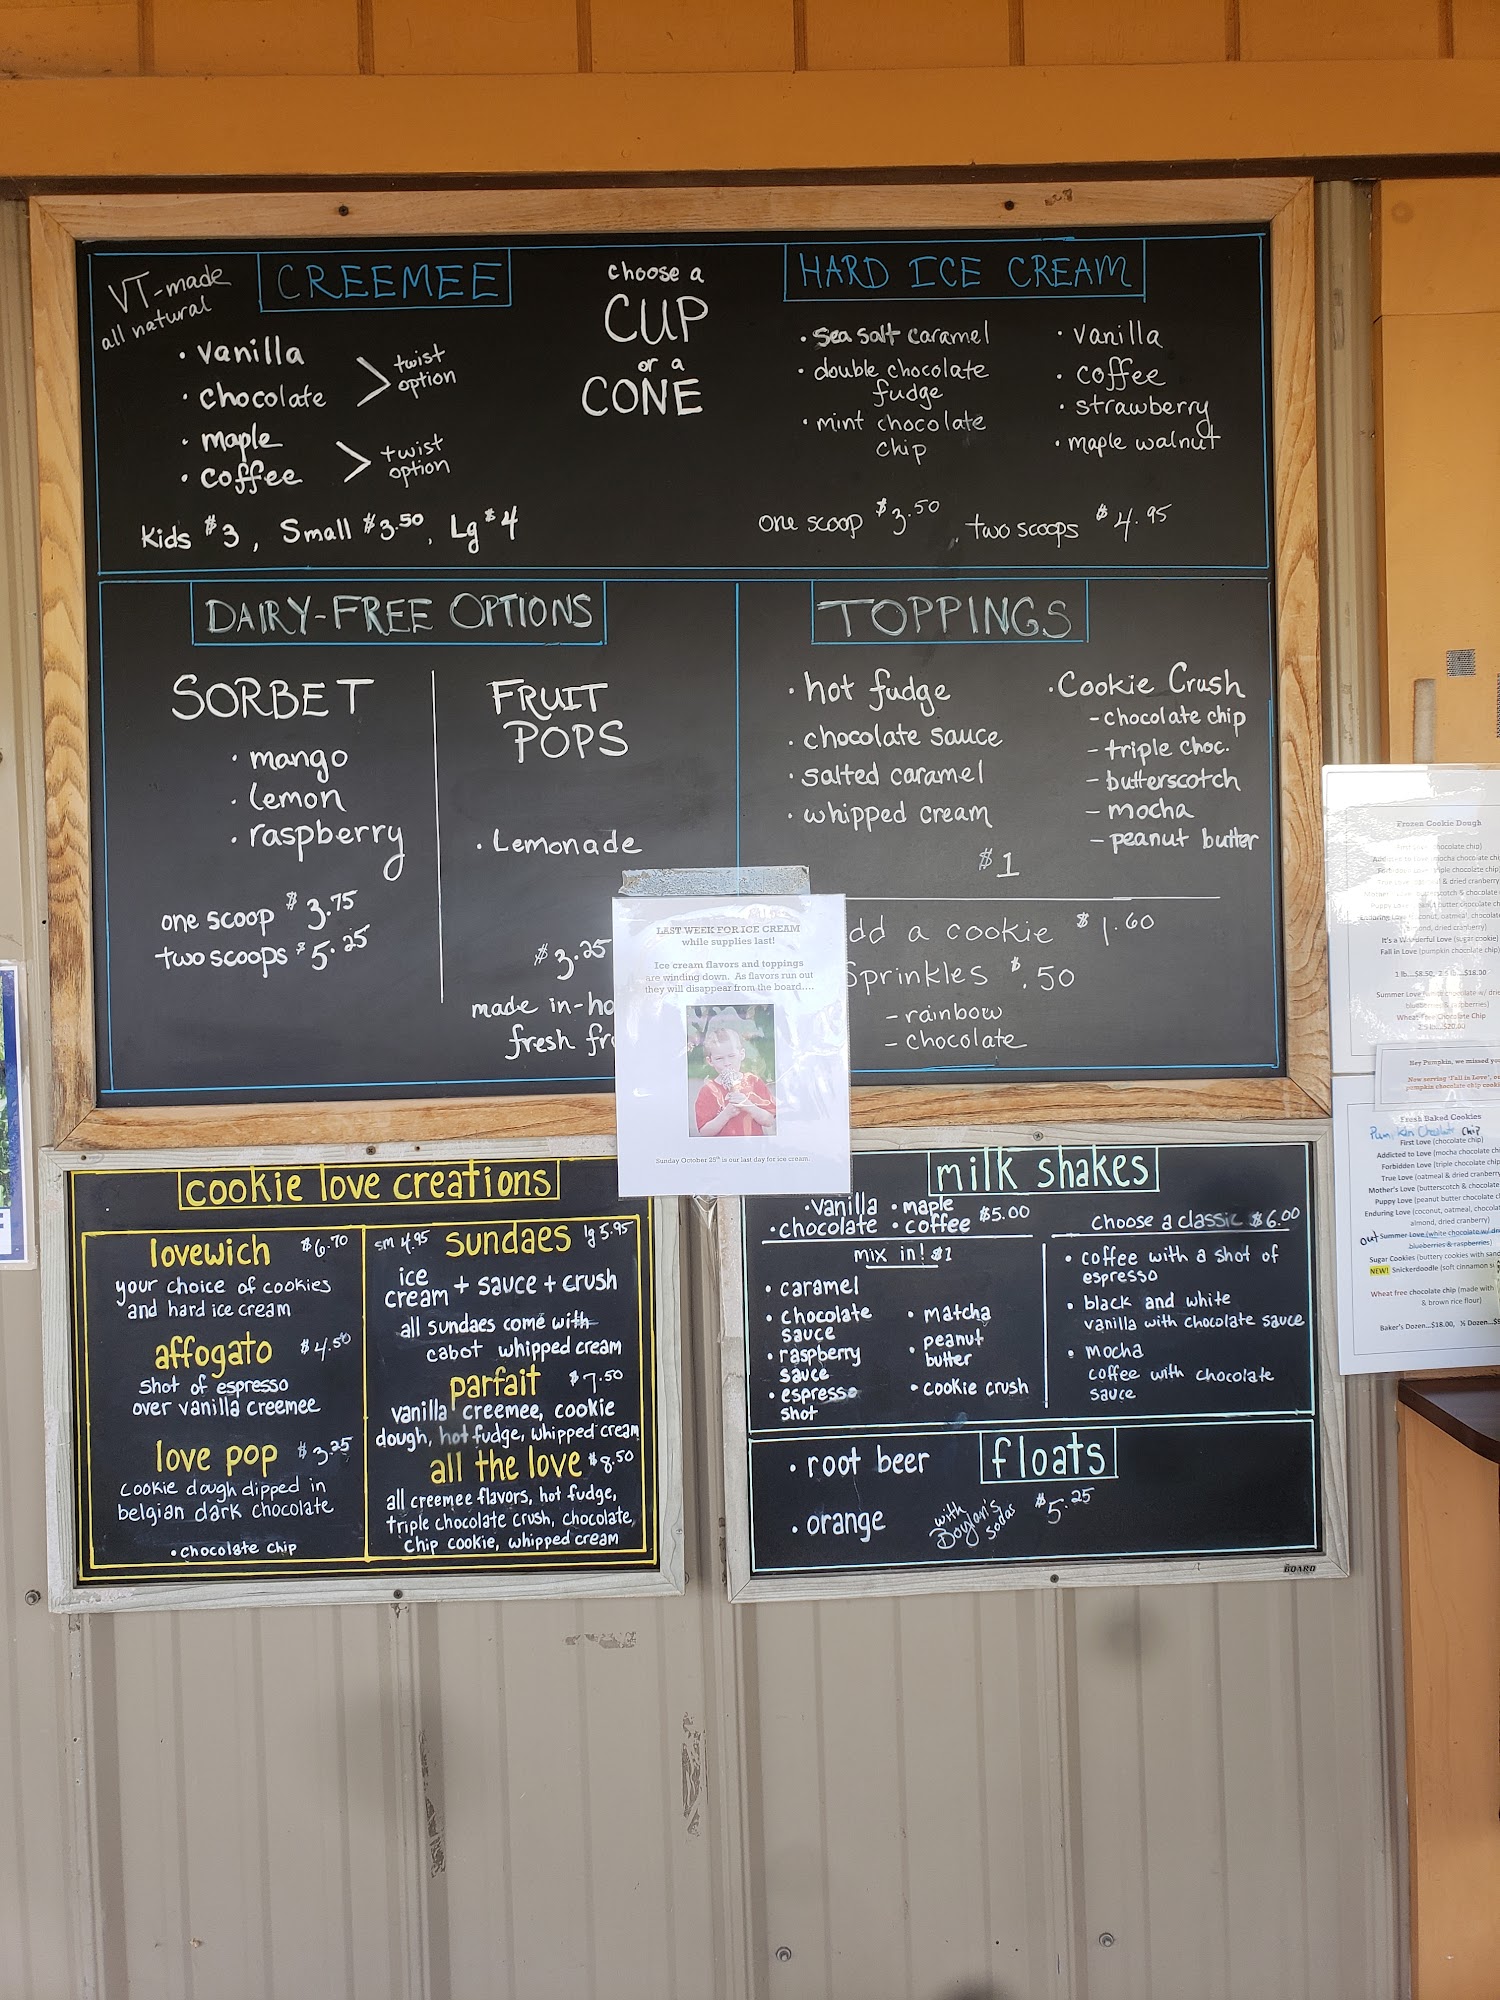 VT-made
all natural
CREEMEE
• vanilla
• chocolate
twist
option
• maple
• coffee
twist
option
Kids $3, Small $3.50, Lg $4
choose a
CUP
or a
CONE
HARD ICE CREAM
• sea salt caramel
• double chocolate
fudge
• mint chocolate
chip
• vanilla
• coffee
• strawberry
• maple walnut
one scoop $3.50, two scoops $4.95
DAIRY-FREE OPTIONS
SORBET
• mango
• lemon
• raspberry
one scoop $3.75
two scoops $5.25
FRUIT
POPS
• Lemonade
$3.25
made in-ho
fresh fr
TOPPINGS
• hot fudge
• chocolate sauce
• salted caramel
• whipped cream
• Cookie Crush
- chocolate chip
- triple choc.
- butterscotch
- mocha
- peanut butter
$1
dd a cookie $1.60
Sprinkles $.50
- rainbow
- chocolate
LAST WEEK FOR ICE CREAM
while supplies last!
Ice cream flavors and toppings
are winding down. As flavors run out
they will disappear from the board....
Sunday October 25th is our last day for ice cream.
cookie love creations
lovewich $6.70
your choice of cookies
and hard ice cream
affogato $4.50
shot of espresso
over vanilla creemee
love pop $3.25
cookie dough dipped in
belgian dark chocolate
• chocolate chip
sm 4.95 sundaes lg 5.95
ice
cream + sauce + crush
all sundaes come with
cabot whipped cream
parfait $7.50
vanilla creemee, cookie
dough, hot fudge, whipped cream
all the love $8.50
all creemee flavors, hot fudge,
triple chocolate crush, chocolate,
chip cookie, whipped cream
milk shakes
• vanilla • maple
• chocolate • coffee $5.00
mix in! $1
• caramel
• chocolate
sauce
• raspberry
sauce
• espresso
shot
• matcha
• peanut
butter
• cookie crush
choose a classic $6.00
• coffee with a shot of
espresso
• black and white
vanilla with chocolate sauce
• mocha
coffee with chocolate
sauce
floats
• root beer
• orange
with
Boylan's
sodas
$5.25
BOARD
Frozen Cookie Dough
It's a Wonderful Love (sugar cookie)
Fall in Love (pumpkin chocolate chip)
Hey Pumpkin, we missed yo
Now serving 'Fall in Love', ou
pumpkin chocolate chip cooki
Fresh Baked Cookies
Pumpkin Chocolate Chip
First Love (chocolate chip)
Addicted to Love (mocha chocolate ch
Forbidden Love (triple chocolate chip
True Love (oatmeal & dried cranberry
Mother's Love (butterscotch & chocolate
Puppy Love (peanut butter chocolate c
Enduring Love (coconut, oatmeal, chocolat
almond, dried cranberry)
out Summer Love (white chocolate w/ dri
blueberries & raspberries)
Sugar Cookies (buttery cookies with sand
NEW! Snickerdoodle (soft cinnamon s
Wheat free chocolate chip (made with
& brown rice flour)
Baker's Dozen...$18.00, ½ Dozen...$9